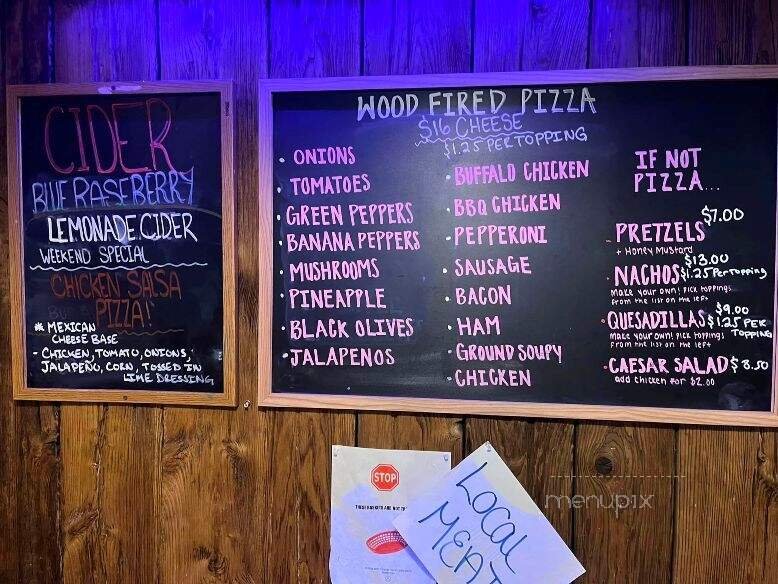 CIDER
BLUE RASEBERRY
LEMONADE CIDER
WEEKEND SPECIAL
CHICKEN SALSA
PIZZA!
* MEXICAN
CHEESE BASE
- CHICKEN, TOMATO, ONIONS,
JALAPEÑO, CORN, TOSSED IN
LIME DRESSING
WOOD FIRED PIZZA
$16 CHEESE
$1.25 PER TOPPING
· ONIONS
· TOMATOES
· GREEN PEPPERS
· BANANA PEPPERS
· MUSHROOMS
· PINEAPPLE
· BLACK OLIVES
· JALAPENOS
· BUFFALO CHICKEN
· BBQ CHICKEN
· PEPPERONI
· SAUSAGE
· BACON
· HAM
· GROUND SOUPY
· CHICKEN
IF NOT
PIZZA...
$7.00
· PRETZELS
+ Honey Mustard
$13.00
· NACHOS $1.25 Per Topping
Make your own! Pick toppings
From the list on the left
$9.00
· QUESADILLAS $1.25 PER
TOPPING
Make your own! Pick toppings
From the list on the left
· CAESAR SALAD $8.50
add chicken for $2.00
STOP
THESE BASKETS ARE NOT
LOCAL
MEAT
menupix